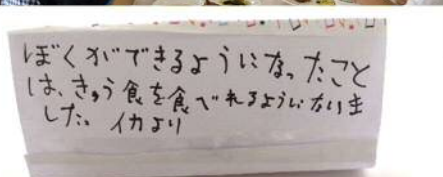 ぼくができるようになったこと
は、きゅう食を食べれるようになりま
した。イカより